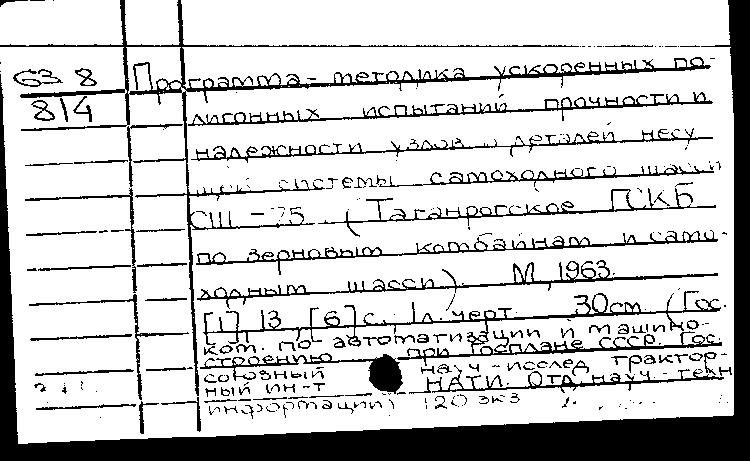 63 8
814
Программа-методика ускоренных по-
лигонных испытаний прочности и
надежности узлов и деталей несу
щей системы самоходного шасси
СШ-75. (Таганрогское ГСКБ
по зерновым комбайнам и само-
ходным шасси). М, 1963.
[1], 13, [6] с., 1 л. черт. 30см (Гос.
ком. по автоматизации и машино-
строению при Госплане СССР. Гос.
союзный науч-исслед трактор-
ный ин-т НАТИ. Отд. науч-техн
информации) 120 экз